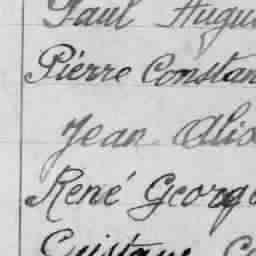 Paul Augu
Piérre Constan
Jean Alio
René George
Gustave C